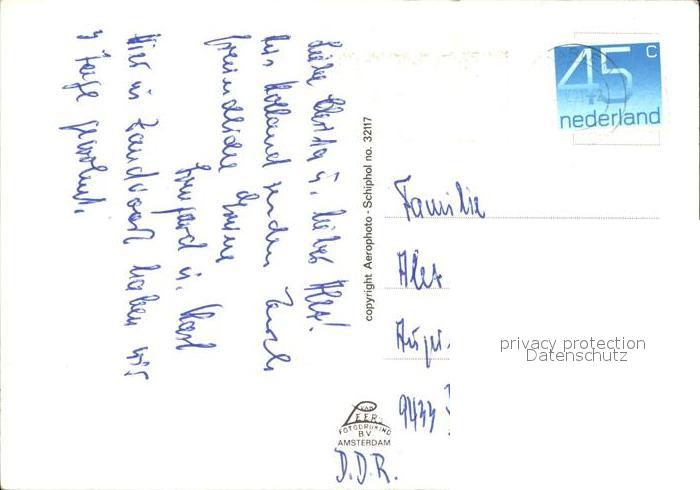 Liebe Martha u. lieber Alex!
Aus Holland senden Euch
freundliche Grüsse
Irmgard u. Karl
Hier in Zandvoort haben wir
3 Tage gewohnt.
copyright Aerophoto - Schiphol no. 32117
45 c
nederland
Familie
Alex
privacy protection
Datenschutz
VAN
LEER'S
FOTODRUKIND.
B.V.
AMSTERDAM
D.D.R.